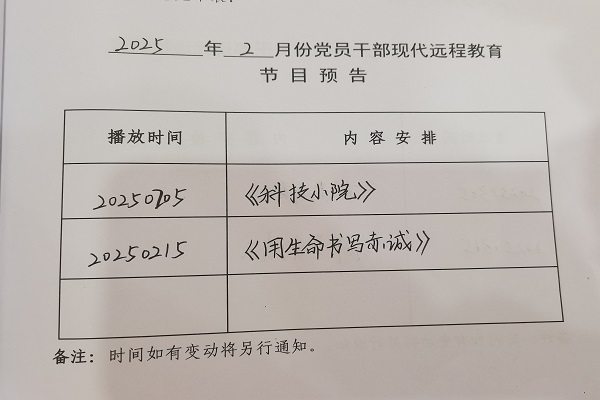 2025 年 2 月份党员干部现代远程教育
节目预告
播放时间 内容安排
20250205 《科技小院》
20250215 《用生命书写赤诚》
备注：时间如有变动将另行通知。